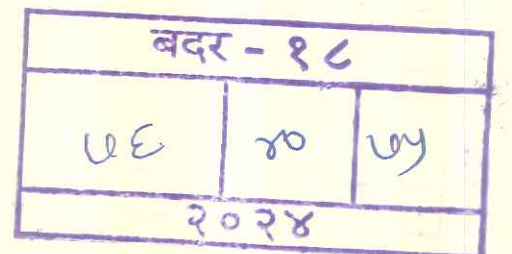 बदर - १८
७६ ४० ७५
२०२४